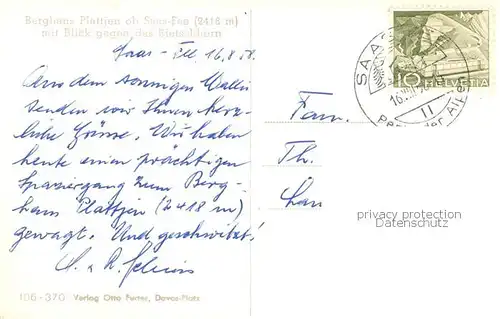 Berghaus Plattjen ob Saas-Fee (2418 m)
mit Blick gegen das Bietschhorn
Saas-Fee 16.8.58.
Aus dem sonnigen Wallis
senden wir Ihnen herz-
liche Grüsse. Wir haben
heute einen prächtigen
Spaziergang zum Berg-
haus Plattjen (2418 m)
gewagt. Und geschwitzt!
106-370 Verlag Otto Furter, Davos-Platz
10 HELVETIA
SAAS
Fam.
Th.
privacy protection
Datenschutz